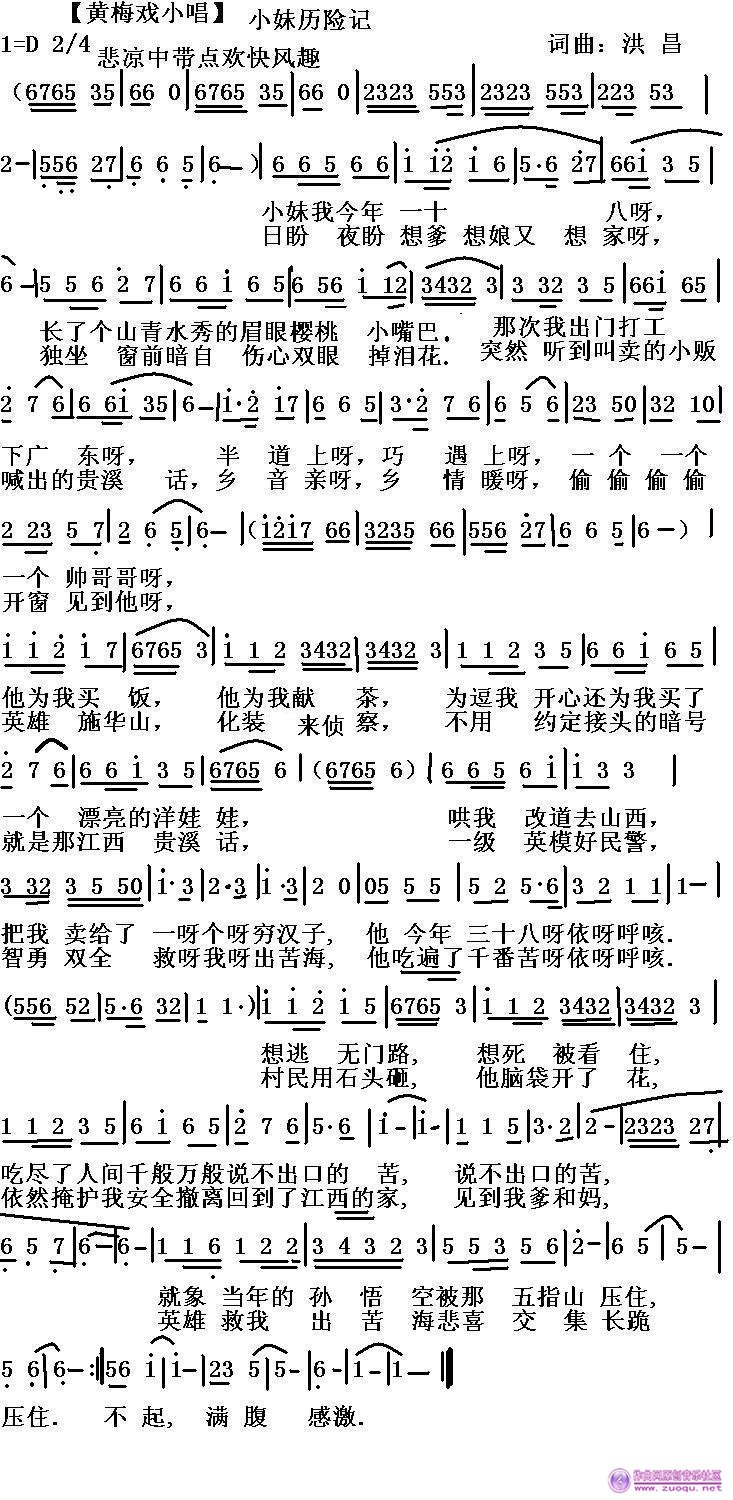 【黄梅戏小唱】 小妹历险记
1=D 2/4 悲凉中带点欢快风趣 词曲：洪 昌
（6765 35|66 0|6765 35|66 0|2323 553|2323 553|223 53 |
2-|556 27|6 6 5|6-）|6 6 5 6 6|1 12 1 6|5·6 27|661 3 5|
小妹我今年 一十 八呀，
日盼 夜盼 想爹 想娘又 想 家呀，
6-|5 5 6 2 7|6 6 1 6 5|6 56 1 12|3432 3|3 32 3 5|661 65|
长了个山青水秀的眉眼樱桃 小嘴巴． 那次我出门打工
独坐 窗前暗自 伤心双眼 掉泪花． 突然 听到叫卖的小贩
2 7 6|6 61 35|6-|1·2 17|6 6 5|3·2 7 6|6 5 6|23 50|32 10|
下广 东呀， 半 道 上呀，巧 遇 上呀，一 个 一个
喊出的贵溪 话，乡 音 亲呀，乡 情 暖呀，偷 偷 偷 偷
2 23 5 7|2 6 5|6-|（1217 66|3235 66|556 27|6 6 5|6-）|
一个 帅哥哥呀，
开窗 见到他呀，
1 1 2 1 7|6765 3|1 1 2 3432|3432 3|1 1 2 3 5|6 6 1 6 5|
他为我买 饭， 他为我献 茶， 为逗我 开心还为我买了
英雄 施华山， 化装 来侦 察， 不用 约定接头的暗号
2 7 6|6 6 1 3 5|6765 6|（6765 6）|6 6 5 6 1|1 3 3 |
一个 漂亮的洋娃 娃， 哄我 改道去山西，
就是那江西 贵溪 话， 一级 英模好民警，
3 32 3 5 50|1·3|2·3|1·3|2 0|05 5 5|5 2 5·6|3 2 1 1|1-|
把我 卖给了 一呀个呀穷汉子， 他 今年 三十八呀依呀呼咳．
智勇 双全 救呀我呀出苦海， 他吃遍了千番苦呀依呀呼咳．
(556 52|5·6 32|1 1·)|1 1 2 1 5|6765 3|1 1 2 3432|3432 3|
想逃 无门路， 想死 被看 住，
村民用石头砸， 他脑袋开了 花，
1 1 2 3 5|6 1 6 5|2 7 6|5·6|1-|1-|1 1 5|3·2|2-|2323 27|
吃尽了人间千般万般说不出口的 苦， 说不出口的苦，
依然掩护我安全撤离回到了江西的家， 见到我爹和妈，
6 5 7|6-|6-|1 1 6 1 2 2|3 4 3 2 3|5 5 3 5 6|2-|6 5|5-|
就象 当年的 孙 悟 空被那 五指山 压住，
英雄 救我 出 苦 海悲喜 交 集 长跪
5 6|6-:‖56 1|1-|23 5|5-|6-|1-|1-‖
压住． 不 起， 满 腹 感 激．
作曲网原创音乐社区
www.zuoqu.net